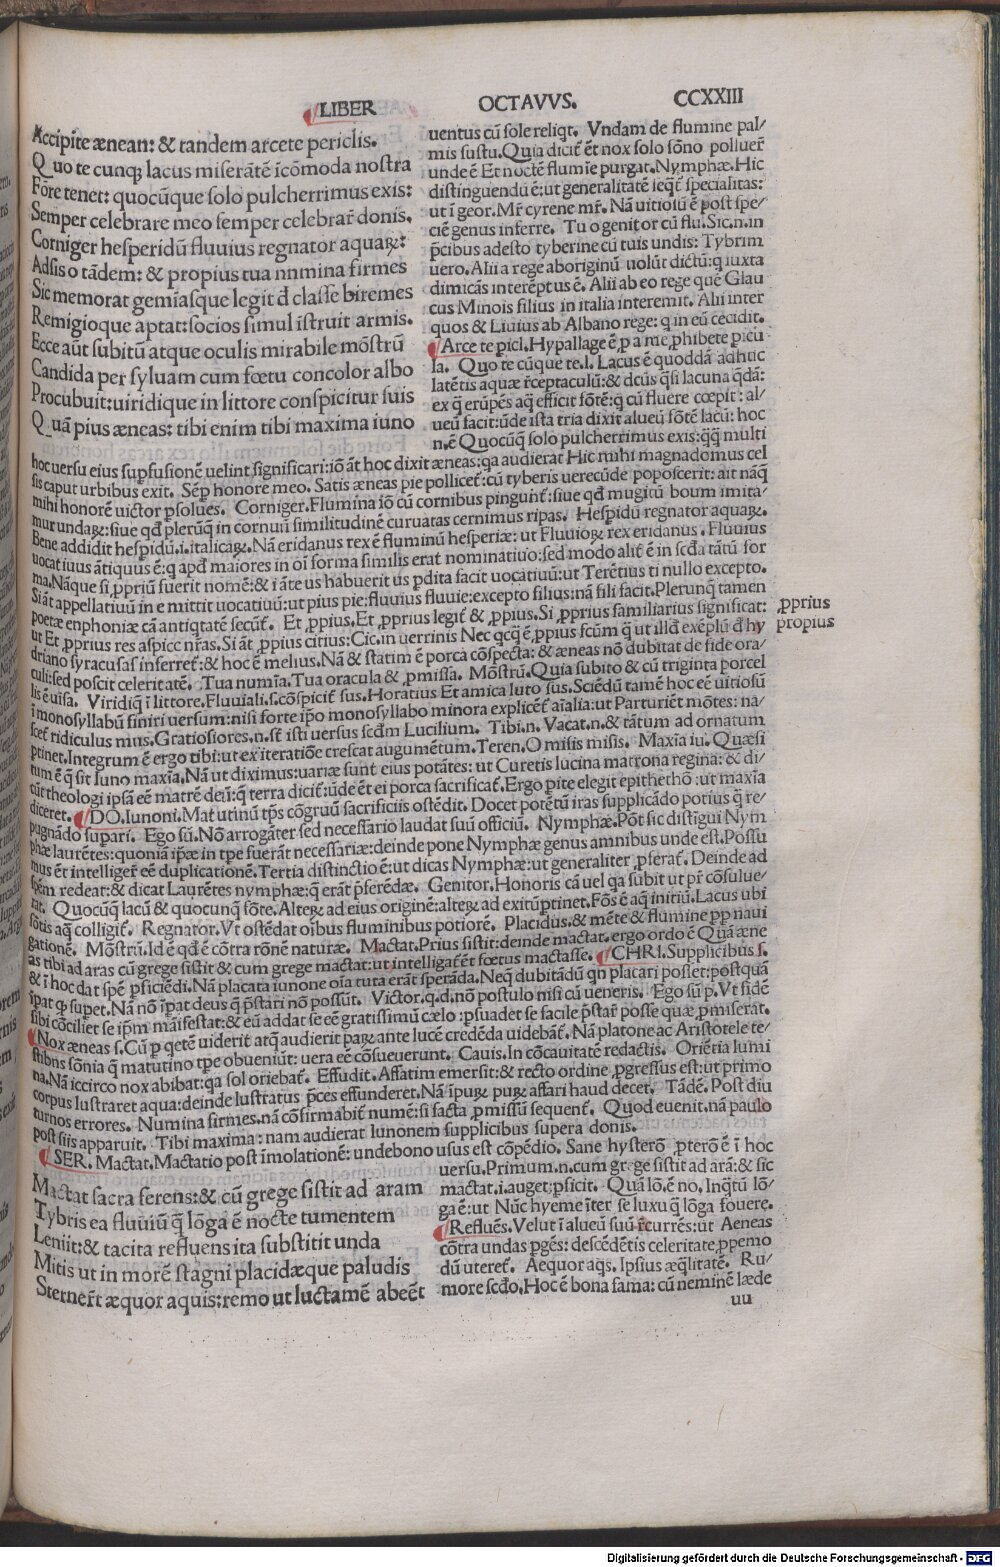 LIBER OCTAVVS. CCXXIII
Accipite ænean: & tandem arcete periclis.
Quo te cunq; lacus miserātē īcōmoda nostra
Fōte tenet: quocūque solo pulcherrimus exis:
Semper celebrare meo semper celebrar̄ donis.
Corniger hesperidū fluuius regnator aquaꝝ:
Adsis o tādem: & propius tua nnmina firmes
Sic memorat gemīasque legit đ classe biremes
Remigioque aptat: socios simul īstruit armis.
Ecce aūt subitū atque oculis mirabile mōstrū
Candida per syluam cum fœtu concolor albo
Procubuit: uiridique in littore conspicitur suis
Quā pius æneas: tibi enim tibi maxima iuno
uentus cū sole reliqt. Vndam de flumine pal/
mis sustu. Quia dicit̄ ēt nox solo sōno polluer̄
unde ē Et noctē flumīe purgat. Nymphæ. Hic
distinguendū ē: ut generalitatē seqt̄ specialitas:
ut ī geor. Mr̄ cyrene mr̄. Nā uitiosū ē post spe/
ciē genus inferre. Tu o genitor cū flu. Sic. n. in
p̄cibus adesto tyberine cū tuis undis: Tybrim
uero. Alii a rege aboriginū uolūt dictū: q iuxta
dimicās interēptus ē. Alii ab eo rege quē Glau
cus Minois filius in italia interemit. Alii inter
quos & Liuius ab Albano rege: q in eū cecidit.
Arce te picl. Hypallage ē, p a me, phibete picu
la. Quo te cūque te. l. Lacus ē quoddā adhuc
latētis aquæ r̄ceptaculū: & dcūs q̄si lacuna q̄dā:
ex q̄ erūpēs aq̄ efficit fōtē: q cū fluere cœpit: al/
ueū facit: ūde ista tria dixit alueū fōtē lacū: hoc
n. ē Quocūq̄ solo pulcherrimus exis: q̄q̄ multi
hoc uersu eius sup̄fusionē uelint significari: iō āt hoc dixit æneas: qa audierat Hic mihi magna domus cel
sis caput urbibus exit. Sēp̄ honore meo. Satis æneas pie pollicet̄: cū tyberis uerecūde poposcerit: ait nāq̄
mihi honorē uictor p̄solues. Corniger. Flumina iō cū cornibus pingunt̄: siue qđ mugitū boum imita/
mur undaꝝ: siue qđ plerūq̄ in cornuū similitudinē curuatas cernimus ripas. Hespidū regnator aquaꝝ.
Bene addidit hespidū. i. italicaꝝ. Nā eridanus rex ē fluminū hesperiæ: ut Fluuioꝝ rex eridanus. Fluuius
uocatiuus ātiquus ē: q apđ maiores in oī forma similis erat nominatiuo: sed modo alit̄ ē in scđa tātū for
ma. Nāque si ꝓpriū fuerit nomē: & i āte us habuerit us pdita facit uocatiuū: ut Terētius ti nullo excepto.
Si āt appellatiuū in e mittit uocatiuū: ut pius pie: fluuius fluuie: excepto filius: nā fili facit. Plerunq̄ tamen
poetæ enphoniæ cā antiqtatē secūt̄. Et ꝓpius, Et ꝓprius legit̄ & ꝓpius. Si ꝓprius familiarius significat:
ut Et ꝓprius res aspicc nr̄as. Si āt ꝓpius citius: Cic. in uerrinis Nec qcq̄ ē ꝓpius fcūm q̄ ut illđ exēplū đ hy
driano syracusas inferret̄: & hoc ē melius. Nā & statim ē porca cōspecta: & æneas nō dubitat de fide ora/
culi: sed poscit celeritatē. Tua numīa. Tua oracula & ꝓmissa. Mōstrū. Quia subito & cū triginta porcel
lis ē uisa. Viridiq̄ ī littore. Fluuiali. s. cōspicit̄ sus. Horatius Et amica luto sus. Sciēdū tamē hoc eē uitiosū
ī monosyllabū finiri uersum: nisi forte ip̄o monosyllabo minora explicēt̄ aīalia: ut Parturiēt mōtes: na/
scet̄ ridiculus mus. Gratiosiores. n. st̄ isti uersus scđm Lucilium. Tibi. n. Vacat. n. & tātum ad ornatum
ptinet. Integrum ē ergo tibi: ut ex iteratiōe crescat augumētum. Teren. O misis misis. Maxīa iu. Quæsi
tum ē q̄ sit Iuno maxīa. Nā ut diximus: uariæ sunt eius potātes: ut Curetis lucina matrona regina: & di/
cūt theologi ipsā eē matrē deū: q̄ terra dicit̄: ūde ēt ei porca sacrificat̄. Ergo pite elegit epithethō: ut maxīa
diceret. DO. Iunoni. Mat̄ utinū tp̄s cōgruū sacrificiis ostēdit. Docet potētū iras supplicādo potius q̄ re/
pugnādo supari. Ego sū. Nō arrogāter sed necessario laudat suū officiū. Nymphæ. Pōt sic distīgui Nym
phæ laurētes: quoniā ip̄æ in tpe fuerāt necessariæ: deinde pone Nymphæ genus amnibus unde est. Possu
mus ēt intelliger̄ eē duplicationē. Tertia distinctio ē: ut dicas Nymphæ: ut generaliter ꝓferat̄. Deinde ad
spēm redeat: & dicat Laurētes nymphæ: q̄ erāt p̄ferēdæ. Genitor. Honoris cā uel qa subit ut pr̄ cōsulue/
rat. Quocūq̄ lacū & quocunq̄ fōte. Alteꝝ ad eius originē: alteꝝ ad exitū ptinet. Fōs ē aq̄ initiū. Lacus ubi
fōtis aq̄ colligit̄. Regnator. Vt ostēdat oībus fluminibus potiorē. Placidus. & mēte & flumine pp naui
gationē. Mōstrū. Id ē qđ ē cōtra rōnē naturæ. Mactat. Prius sistit: deinde mactat. ergo ordo ē Quā æne
as tibi ad aras cū grege sistit & cum grege mactat: ut intelligat̄ ēt fœtus mactasse. CHRI. Supplicibus s.
& ī hoc dat spē p̄ficiēdi. Nā placata iunone oīa tuta erāt sperāda. Neq̄ dubitādū qn placari posset: postquā
īpat qƿ supet. Nā nō īpat deus q̄ p̄stari nō possūt. Victor. q. d. nō postulo nisi cū ueneris. Ego sū p. Vt fidē
sibi cōciliet se ip̄m māifestat: & eū addat se eē gratissimū cælo: ꝓsuadet se facile p̄star̄ posse quæ ꝓmiserat.
Nox æneas s. Cū p qetē uiderit atq̄ audierit paꝝ ante lucē credēda uidebāt̄. Nā platone ac Aristotele te/
stibns sōnia q̄ matutino tpe obueniūt: uera eē cōsueuerunt. Cauis. In cōcauitatē redactis. Oriētia lumi
na. Nā iccirco nox abibat: qa sol oriebat̄. Effudit. Affatim emersit: & recto ordine ꝓgressus est: ut primo
corpus lustraret aqua: deinde lustratus p̄ces effunderet. Nā īpuꝝ puꝝ affari haud decet. Tādē. Post diu
turnos errores. Numina firmes. nā cōfirmabit̄ numē: si facta ꝓmissū sequent̄. Quod euenit. nā paulo
post siis apparuit. Tibi maxima: nam audierat Iunonem supplicibus supera donis.
SER. Mactat. Mactatio post īmolationē: unde bono usus est cōpēdio. Sane hysterō ꝓterō ē ī hoc
uersu. Primum. n. cum grege sistit ad arā: & sic
mactat. i. auget: p̄ficit. Quā lō. ē no, Inq̄tū lō/
ga ē: ut Nūc hyeme īter se luxu q̄ lōga fouere.
Refluēs. Velut ī alueū suū r̄currēs: ut Aeneas
cōtra undas pgēs: descēdētis celeritate, ꝓpemo
dū uteret̄. Aequor aqs. Ipsius æq̄litatē. Ru/
more scđo. Hoc ē bona fama: cū neminē læde
Mactat sacra ferens: & cū grege sistit ad aram
Tybris ea fluuiū q̄ lōga ē nocte tumentem
Leniit: & tacita refluens ita substitit unda
Mitis ut in morē stagni placidæque paludis
Sterner̄t æquor aquis: remo ut luctamē abeēt
uu
ꝓprius
propius
Digitalisierung gefördert durch die Deutsche Forschungsgemeinschaft - DFG